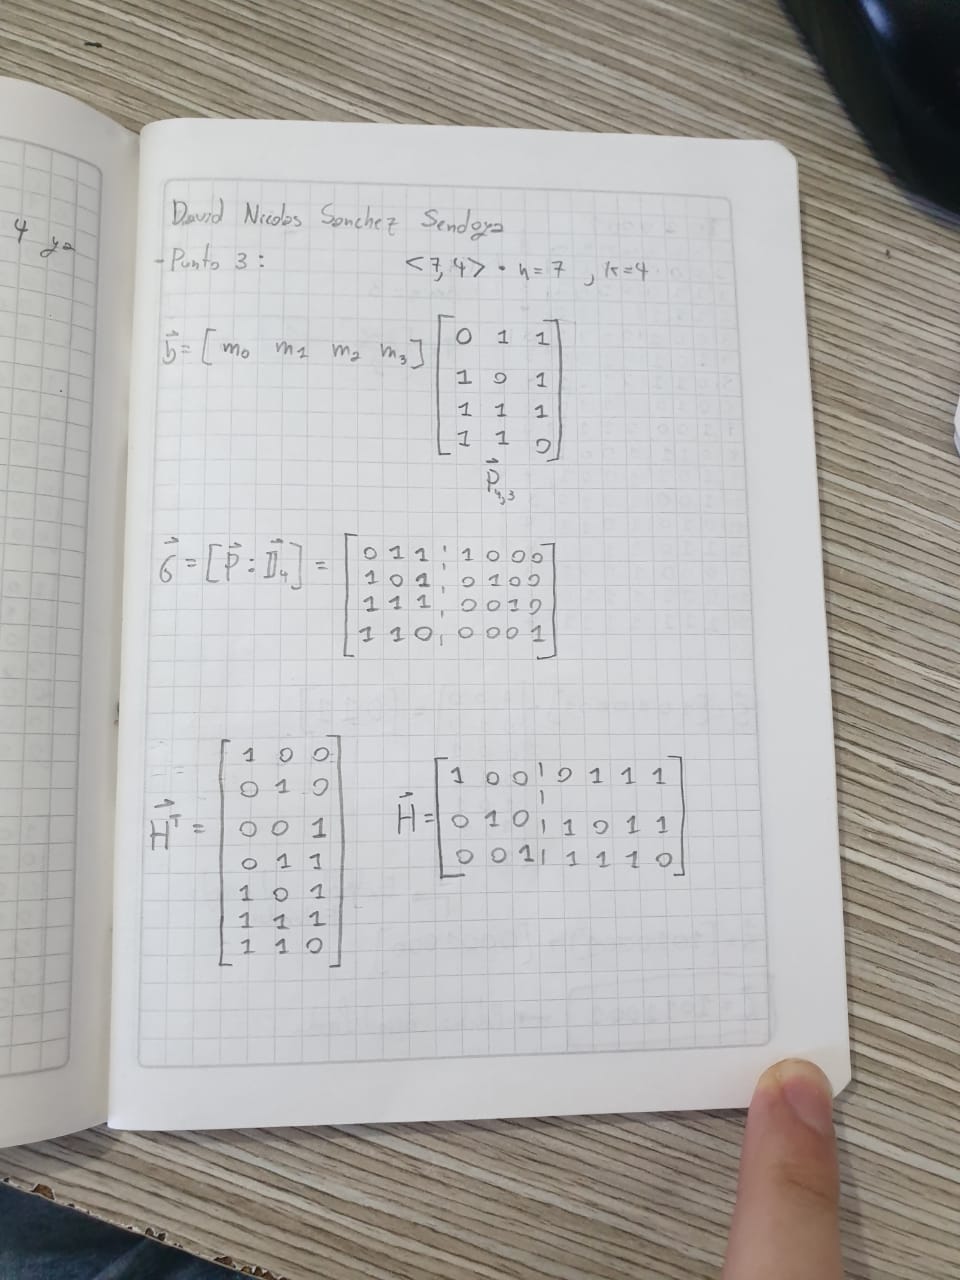 4 ya
David Nicolas Sanchez Sendoya
- Punto 3: <7,4> • n=7 , k=4
b⃗ = [ m₀ m₁ m₂ m₃ ] [ 0 1 1
1 0 1
1 1 1
1 1 0 ]
P⃗₄,₃
G⃗ = [P⃗ : I⃗₄] = [ 0 1 1 ¦ 1 0 0 0
1 0 1 ¦ 0 1 0 0
1 1 1 ¦ 0 0 1 0
1 1 0 ¦ 0 0 0 1 ]
H⃗ᵀ = [ 1 0 0
0 1 0
0 0 1
0 1 1
1 0 1
1 1 1
1 1 0 ]
H⃗ = [ 1 0 0 ¦ 0 1 1 1
0 1 0 ¦ 1 0 1 1
0 0 1 ¦ 1 1 1 0 ]